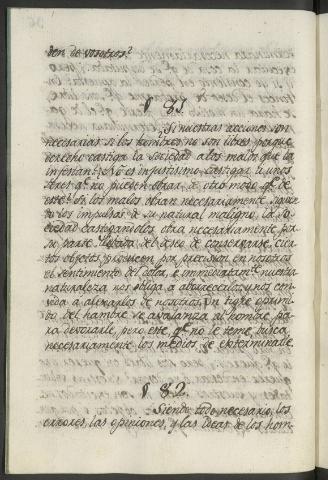 den de vosotros?
§ 81.
¿Si nuestras acciones son
necesarias si los hombres no son libres, porque
derecho castiga la sociedad a los malos que la
infestan? No es injustisimo castigar a unos
Stres qᵉ no pueden obrar de otro modo qᵉ de
este? Si los malos obran necesariamente siguien
do los impulsos de su natural maligno, la so
ciedad castigandolos obra necesariamente por
su parte llevada del deseo de conservarse, cier
tos objetos producen por precision en nosotros
el sentimiento del dolor, e inmediatamᵗᵉ nuestra
naturaleza nos obliga a aborrecerlos, y nos con
vida a alexarlos de nosotros. Un tigre oprimi
do del hambre se avalanza al hombre pa
ra devorarle, pero este qᵉ no le teme busca
necesariamente los medios de exterminarle.
§ 82.
Siendo todo necesario, los
errores, las opiniones, y las ideas de los hom-